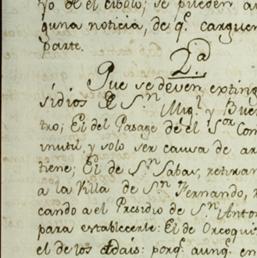 yo. de el cibolo; se pueden au
guna noticia, de q.^e carguen
parte.
2.^a
Que se deven exting
sidios de S.^n Mig.^l y Bue
tro; El del Pasage de el S.^or Con
inutil, y solo ser causa de ar
tiene; El de S.^n Sabas, retiran
a la Villa de S.^n Fernando, r
cando a el Presidio de S.^n Anton
para establecerle: El de Orcoqui
el de los Adais: porq.^e aunq.^e en